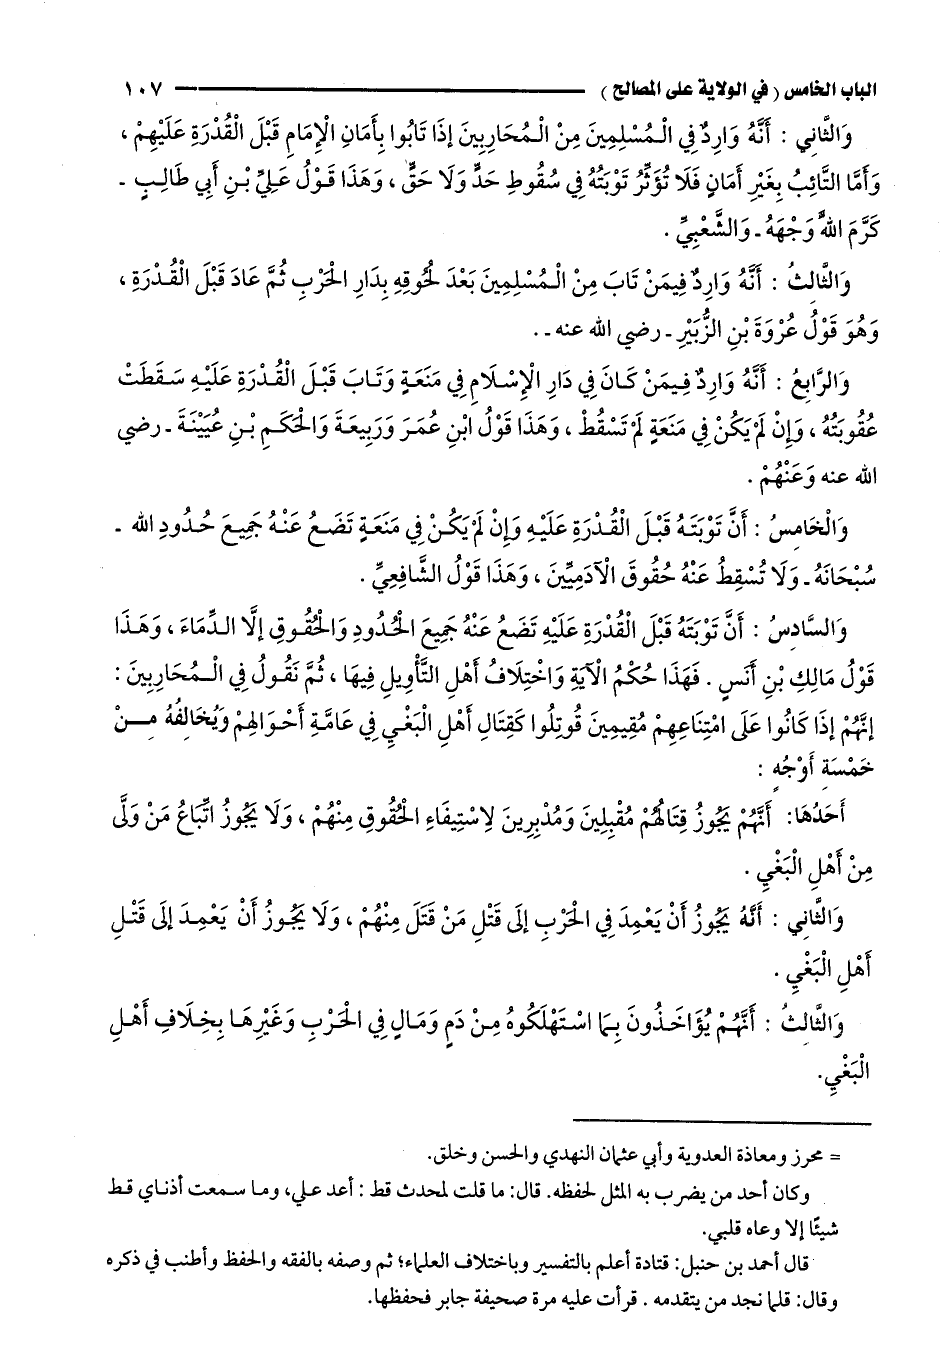 الباب الخامس ( في الولاية على المصالح ) ١٠٧
وَالثَّانِي : أَنَّهُ وَارِدٌ فِي الْمُسْلِمِينَ مِنْ الْمُحَارِبِينَ إذَا تَابُوا بِأَمَانِ الْإِمَامِ قَبْلَ الْقُدْرَةِ عَلَيْهِمْ ،
وَأَمَّا التَّائِبُ بِغَيْرِ أَمَانٍ فَلَا تُؤَثِّرُ تَوْبَتُهُ فِي سُقُوطِ حَدٍّ وَلَا حَقٍّ ، وَهَذَا قَوْلُ عَلِيِّ بْنِ أَبِي طَالِبٍ ـ
كَرَّمَ اللهُ وَجْهَهُ ـ وَالشَّعْبِيِّ .
وَالثَّالِثُ : أَنَّهُ وَارِدٌ فِيمَنْ تَابَ مِنْ الْمُسْلِمِينَ بَعْدَ لُحُوقِهِ بِدَارِ الْحَرْبِ ثُمَّ عَادَ قَبْلَ الْقُدْرَةِ ،
وَهُوَ قَوْلُ عُرْوَةَ بْنِ الزُّبَيْرِ ـ رضي الله عنه ـ .
وَالرَّابِعُ : أَنَّهُ وَارِدٌ فِيمَنْ كَانَ فِي دَارِ الْإِسْلَامِ فِي مَنَعَةٍ وَتَابَ قَبْلَ الْقُدْرَةِ عَلَيْهِ سَقَطَتْ
عُقُوبَتُهُ ، وَإِنْ لَمْ يَكُنْ فِي مَنَعَةٍ لَمْ تَسْقُطْ ، وَهَذَا قَوْلُ ابْنِ عُمَرَ وَرَبِيعَةَ وَالْحَكَمِ بْنِ عُيَيْنَةَ ـ رضي
الله عنه وَعَنْهُمْ .
وَالْخَامِسُ : أَنَّ تَوْبَتَهُ قَبْلَ الْقُدْرَةِ عَلَيْهِ وَإِنْ لَمْ يَكُنْ فِي مَنَعَةٍ تَضَعُ عَنْهُ جَمِيعَ حُدُودِ الله ـ
سُبْحَانَهُ ـ وَلَا تُسْقِطُ عَنْهُ حُقُوقَ الْآدَمِيِّينَ ، وَهَذَا قَوْلُ الشَّافِعِيِّ .
وَالسَّادِسُ : أَنَّ تَوْبَتَهُ قَبْلَ الْقُدْرَةِ عَلَيْهِ تَضَعُ عَنْهُ جَمِيعَ الْحُدُودِ وَالْحُقُوقِ إلَّا الدِّمَاءَ ، وَهَذَا
قَوْلُ مَالِكِ بْنِ أَنَسٍ . فَهَذَا حُكْمُ الْآيَةِ وَاخْتِلَافُ أَهْلِ التَّأْوِيلِ فِيهَا ، ثُمَّ نَقُولُ فِي الْمُحَارِبِينَ :
إنَّهُمْ إذَا كَانُوا عَلَى امْتِنَاعِهِمْ مُقِيمِينَ قُوتِلُوا كَقِتَالِ أَهْلِ الْبَغْيِ فِي عَامَّةِ أَحْوَالِهِمْ وَيُخَالِفُهُ مِنْ
خَمْسَةِ أَوْجُهٍ :
أَحَدُهَا: أَنَّهُمْ يَجُوزُ قِتَالُهُمْ مُقْبِلِينَ وَمُدْبِرِينَ لِاسْتِيفَاءِ الْحُقُوقِ مِنْهُمْ ، وَلَا يَجُوزُ اتِّبَاعُ مَنْ وَلَّى
مِنْ أَهْلِ الْبَغْيِ .
وَالثَّانِي : أَنَّهُ يَجُوزُ أَنْ يَعْمِدَ فِي الْحَرْبِ إلَى قَتْلِ مَنْ قَتَلَ مِنْهُمْ ، وَلَا يَجُوزُ أَنْ يَعْمِدَ إلَى قَتْلِ
أَهْلِ الْبَغْيِ .
وَالثَّالِثُ : أَنَّهُمْ يُؤَاخَذُونَ بِمَا اسْتَهْلَكُوهُ مِنْ دَمٍ وَمَالٍ فِي الْحَرْبِ وَغَيْرِهَا بِخِلَافِ أَهْلِ
الْبَغْيِ.
= محرز ومعاذة العدوية وأبي عثمان النهدي والحسن وخلق.
وكان أحد من يضرب به المثل لحفظه. قال: ما قلت لمحدث قط : أعد علي، وما سمعت أذناي قط
شيئًا إلا وعاه قلبي.
قال أحمد بن حنبل: قتادة أعلم بالتفسير وباختلاف العلماء؛ ثم وصفه بالفقه والحفظ وأطنب في ذكره
وقال: قلما نجد من يتقدمه . قرأت عليه مرة صحيفة جابر فحفظها.